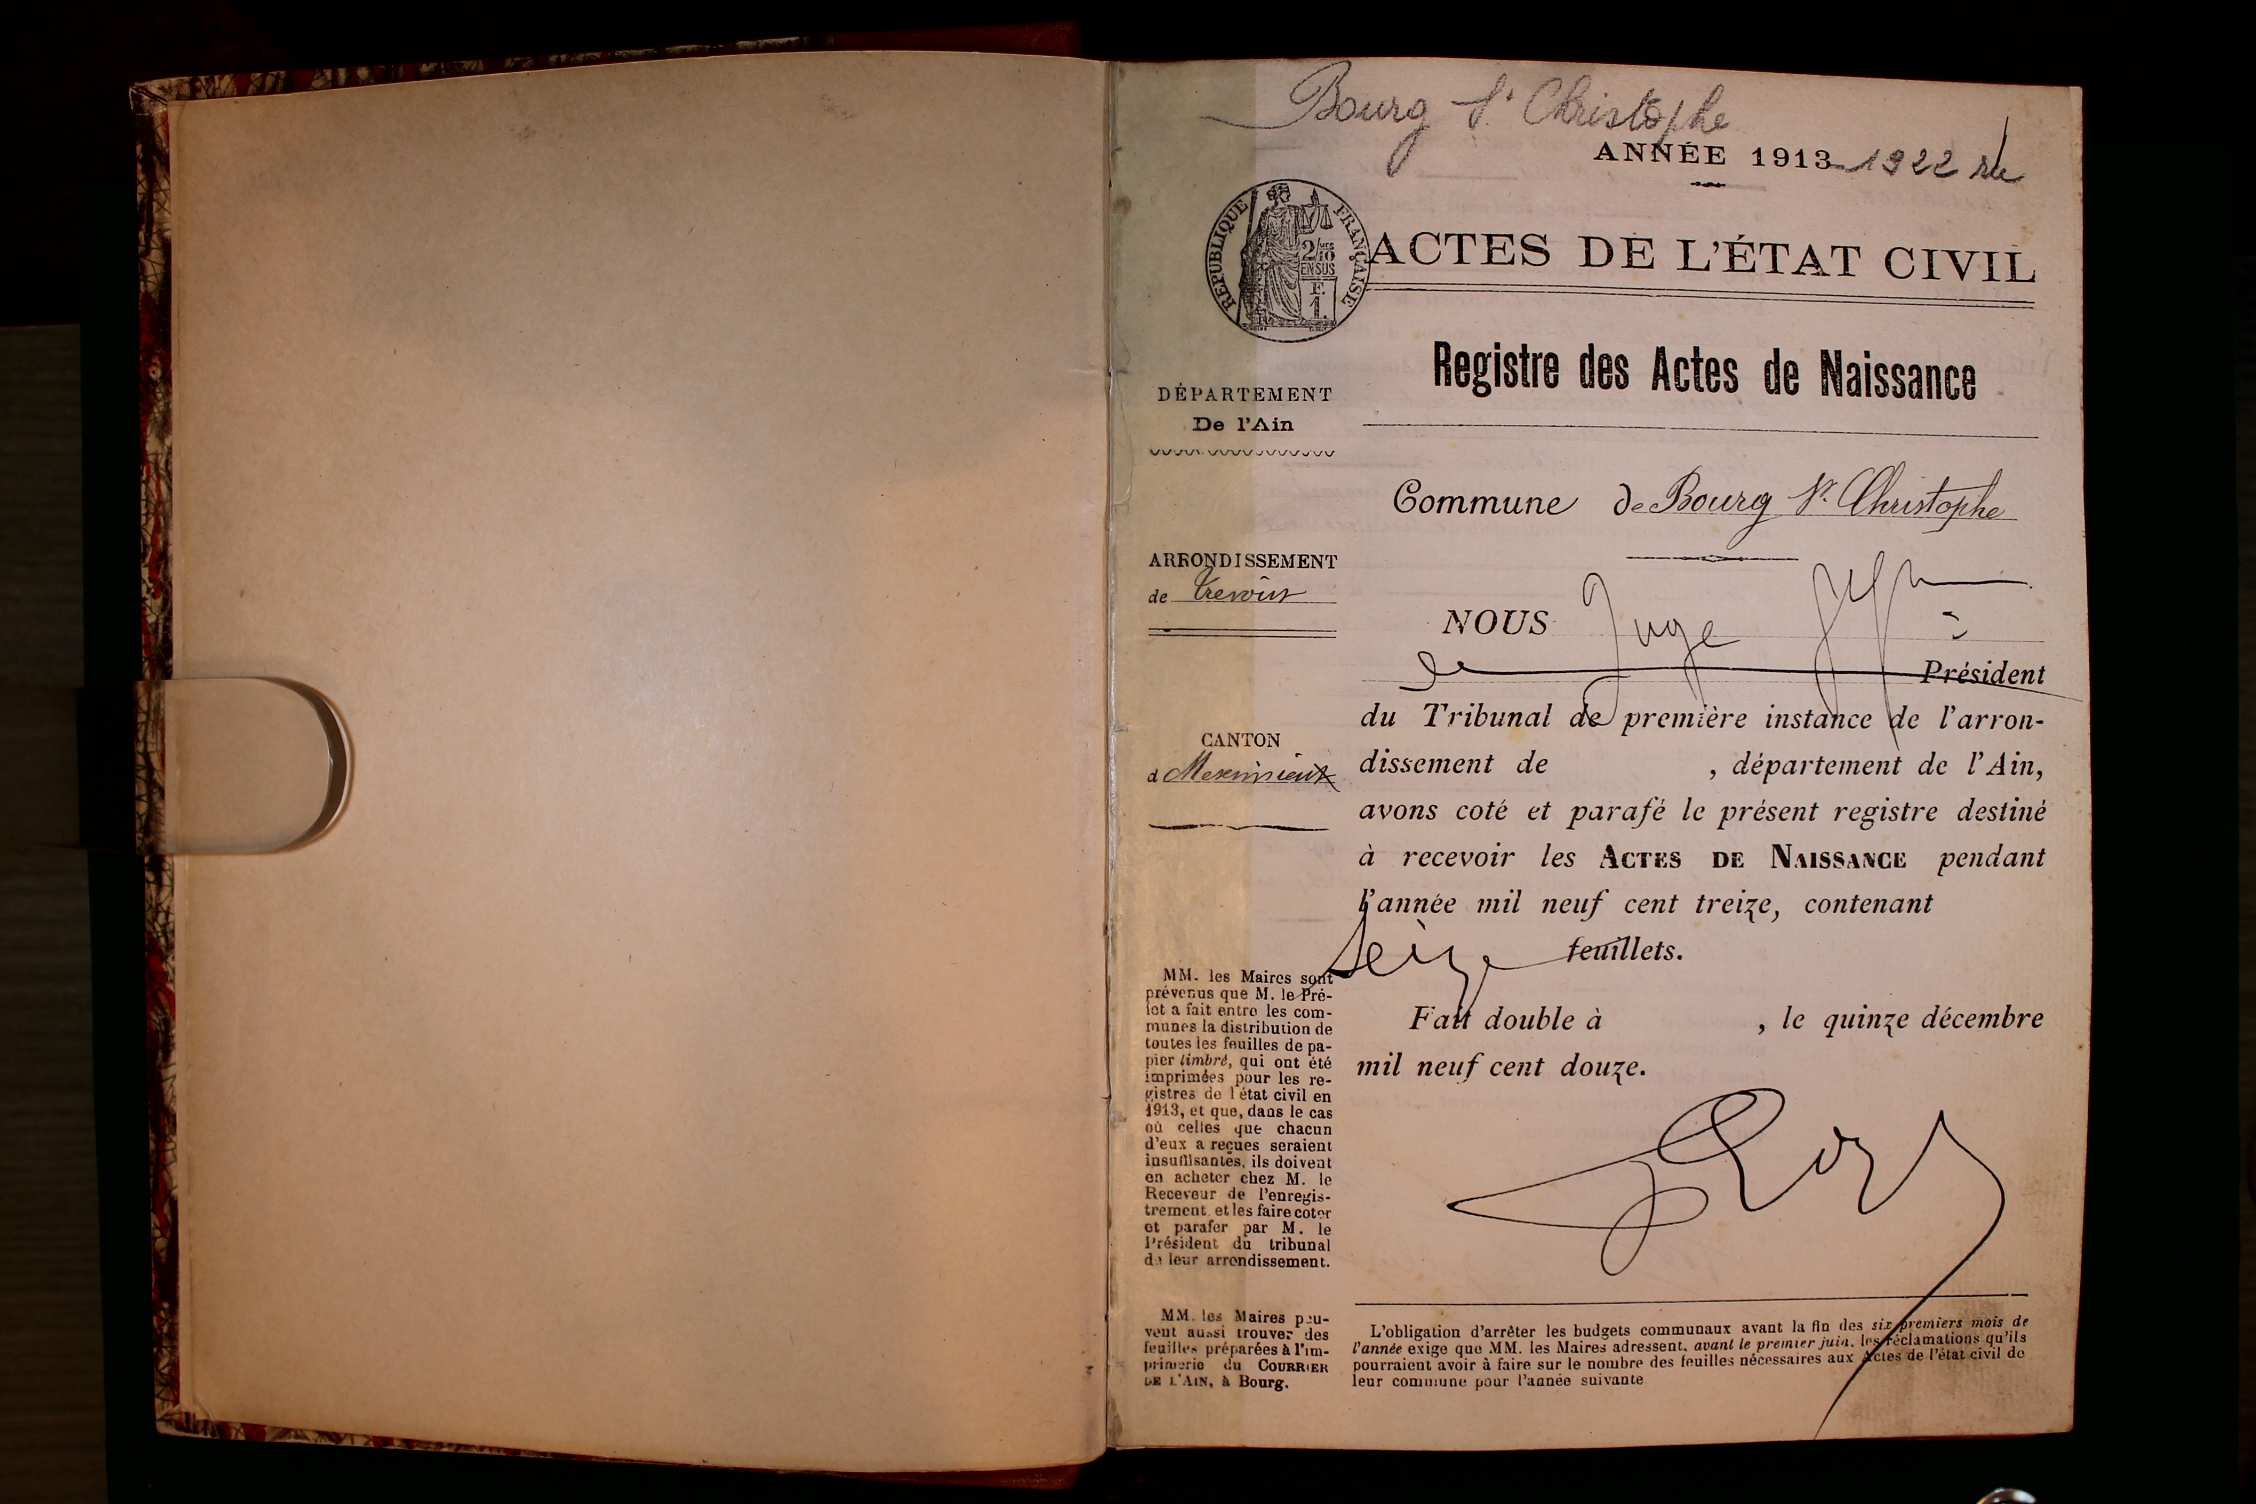 Bourg St Christophe
ANNÉE 1913-1922
RÉPUBLIQUE FRANÇAISE
2/10
EN SUS
F.
1.
ACTES DE L'ÉTAT CIVIL
Registre des Actes de Naissance
DÉPARTEMENT
De l'Ain
Commune de Bourg St. Christophe
ARRONDISSEMENT
de Trévoux
NOUS Juge
de Président
du Tribunal de première instance de l'arron-
CANTON
d Meximieux
dissement de , département de l'Ain,
avons coté et parafé le présent registre destiné
à recevoir les ACTES DE NAISSANCE pendant
l'année mil neuf cent treize, contenant
seize feuillets.
Fait double à , le quinze décembre
mil neuf cent douze.
MM. les Maires sont
prévenus que M. le Pré-
fet a fait entre les com-
munes la distribution de
toutes les feuilles de pa-
pier timbré, qui ont été
imprimées pour les re-
gistres de l'état civil en
1913, et que, dans le cas
où celles que chacun
d'eux a reçues seraient
insuffisantes, ils doivent
en acheter chez M. le
Receveur de l'enregis-
trement et les faire coter
et parafer par M. le
Président du tribunal
de leur arrondissement.
MM. les Maires peu-
vent aussi trouver des
feuilles préparées à l'im-
primerie du COURRIER
DE L'AIN, à Bourg.
L'obligation d'arrêter les budgets communaux avant la fin des six premiers mois de
l'année exige que MM. les Maires adressent, avant le premier juin, les réclamations qu'ils
pourraient avoir à faire sur le nombre des feuilles nécessaires aux Actes de l'état civil de
leur commune pour l'année suivante